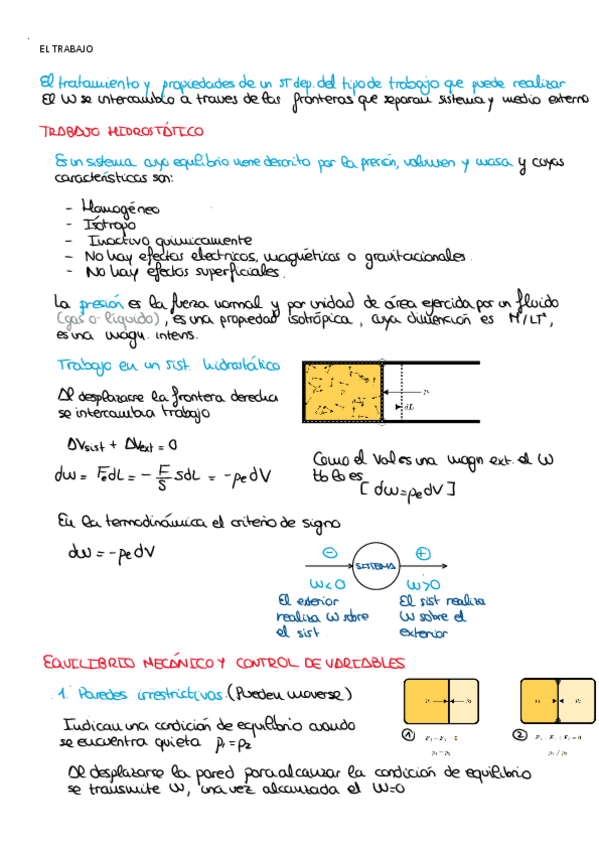 EL TRABAJO
El tratamiento y propiedades de un ST dep. del tipo de trabajo que puede realizar
El W se intercambia a traves de las fronteras que separan sistema y medio externo
TRABAJO HIDROSTÁTICO
Es un sistema cuyo equilibrio viene descrito por la presión, volumen y masa y cuyas
características son:
- Homogéneo
- Isótropo
- Inactivo químicamente
- No hay efectos electricos, magnéticos o gravitacionales.
- No hay efectos superficiales.
La presión es la fuerza normal y por unidad de área ejercida por un fluido
(gas o líquido), es una propiedad isotrópica, cuya dimensión es M/LT²,
es una magn. intens.
Trabajo en un sist. hidrostático
Al desplazarse la frontera derecha
se intercambia trabajo
Pe
dL
ΔVsist + ΔVext = 0
dw = FedL = - F/S SdL = - pe dV
Como el Vol es una magn ext. el W
tb lo es
[dw = pe dV]
En la termodinámica el criterio de signo
dw = - pe dV
⊖ SISTEMA ⊕
W<0 W>0
El exterior
realiza W sobre
el sist
El sist realiza
W sobre el
exterior
EQUILIBRIO MECÁNICO Y CONTROL DE VARIABLES
1. Paredes irrestrictivas. (Pueden moverse)
Indican una condición de equilibrio cuando
se encuentra quieta p₁ = p₂
① ②
Al desplazarse la pared para alcanzar la condición de equilibrio
se transmite W, una vez alcanzada el W=0